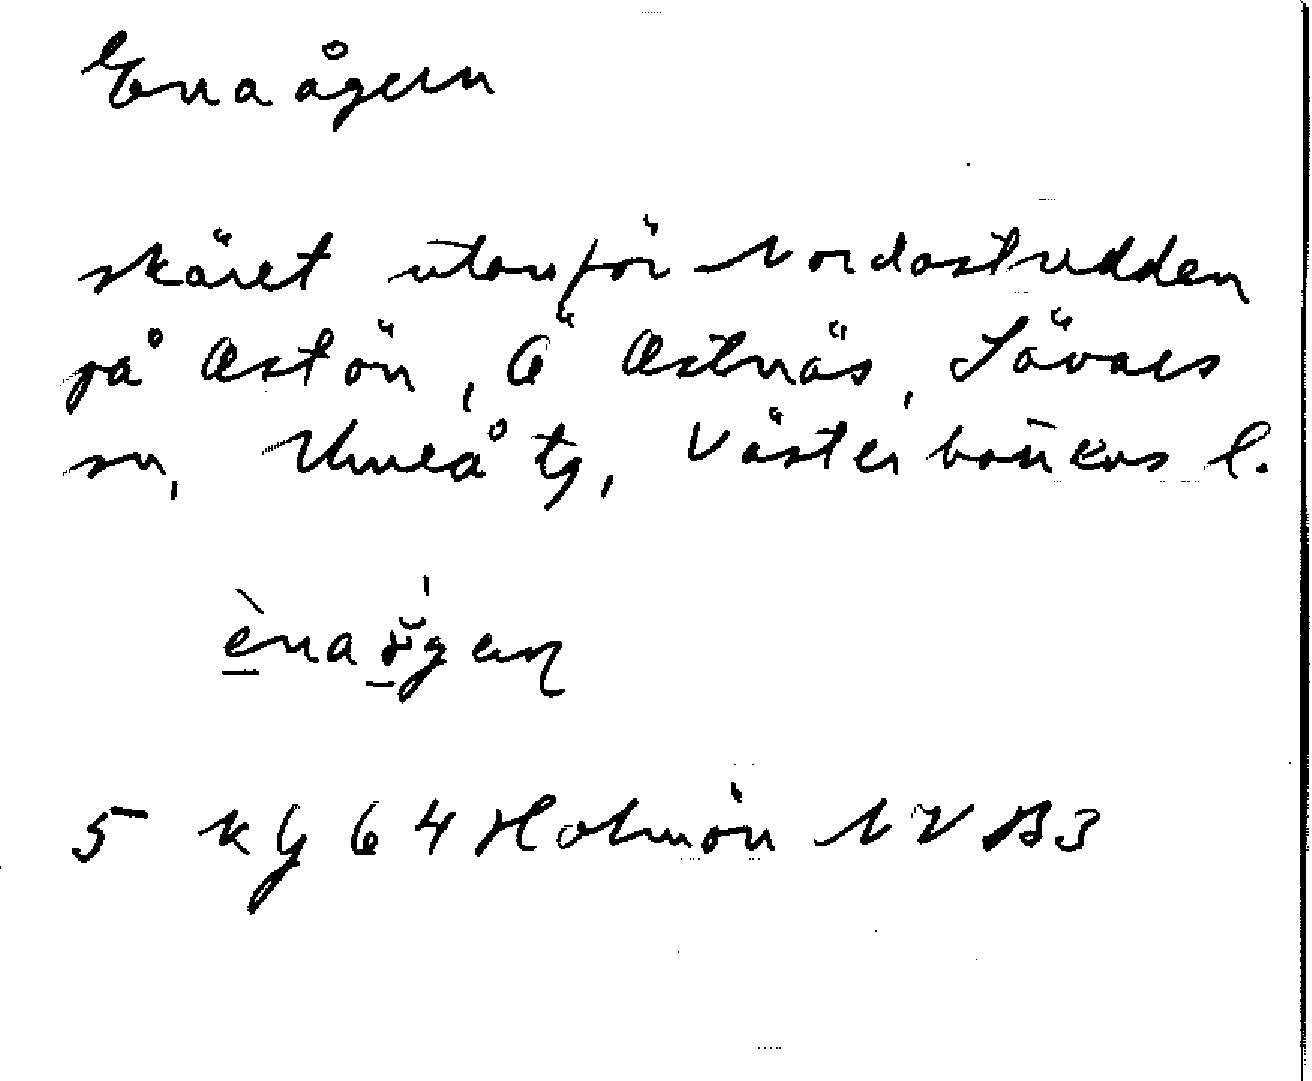 Enaågern
skäret utanför Nordostudden
på Ostön, Ö Ostnäs, Sävars
sn, Umeå tg, Västerbottens l.
5 kg 64 Holmön NV B3